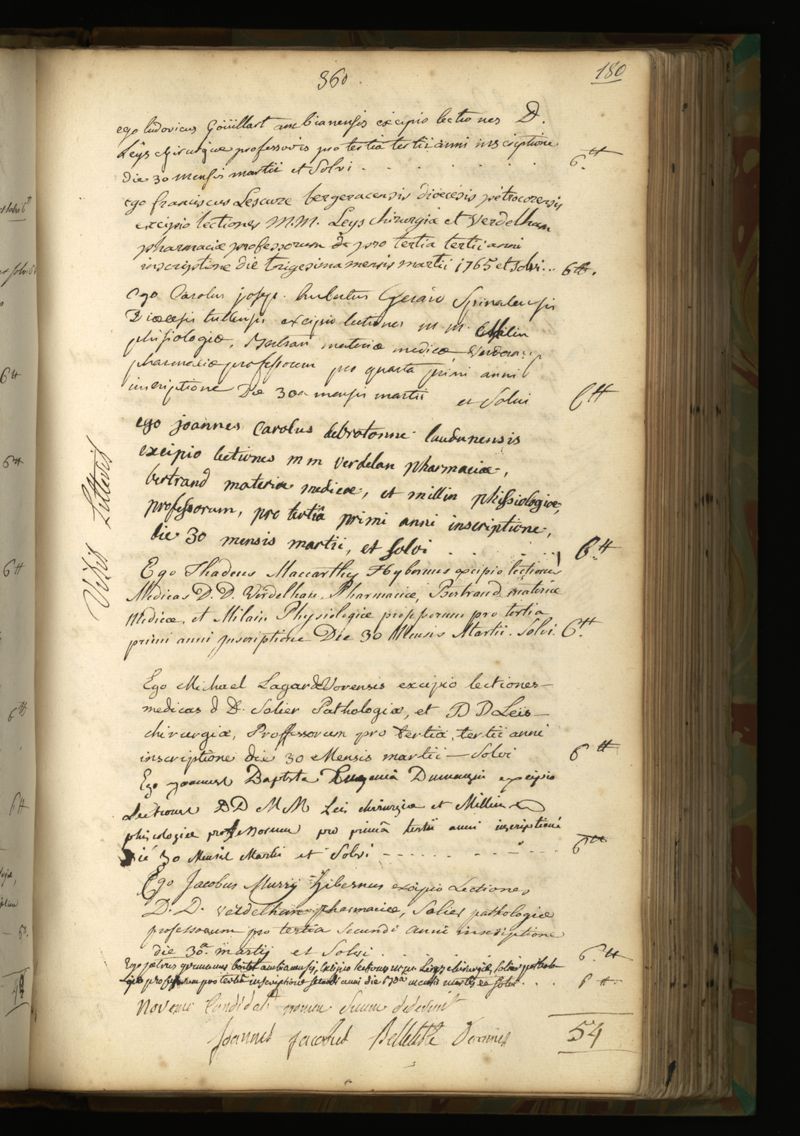 360.
180
ego ludovicus Goüillart ambianensis excipio lectiones D.
Leÿs chirurgiæ professoris pro tertia tertii anni inscriptione
die 30 mensis martii et solvi . . . . . . . 6 ₶
ego franciscus Lescure bergeracensis diœcesis petrocorensis
excipio lectiones M.M. Leys chirurgiæ et Verdelhan
pharmaciæ professorum pro tertia tertii anni
inscriptione die trigesima mensis martii 1765 et solvi... 6 ₶.
Ego Carolus joseph hubertus Gerard Spinalensis
Diœcesis tullensis excipio lectiones m. m. Milin
phisiologiæ, materiæ medicæ,
pharmaciæ professorum pro quarta primi anni
inscriptione Die 30a mensis martii et Solvi 6 ₶
ego joannes Carolus debrotonne laudunensis
excipio lectiones m m verdelan pharmaciæ,
bertrand materiæ medicæ, et millin phissiologiæ,
professorum, pro tertiâ primi anni inscriptione,
die 30 mensis martii, et solvi . . . . . . 6 ₶
Visis Litteris
Ego Thadeus Maccarthy Hybernus excipio lectiones
Medicas D. D. Verdelhan Pharmaciæ, Bertrand materiæ
Medicæ, et Milain Physiologiæ professorum pro tertia
primi anni Inscriptione Die 30 Mensis Martii. Solvi. 6 ₶
Ego Michael Lagarde Vorensis excipio lectiones
medicas d D. Solier Pathologiæ, et D D Leïs
chirurgiæ, Proffessorum pro tertia tertii anni
inscriptione die 30 Mensis martii — Solvi 6 ₶
Ego joannes Baptista Eugenius excipio
Lectiones DD MM Leis chirurgiæ et Millin
phisiologiæ professorum pro primâ tertii anni inscriptione
Die 30 Mensis Martii et Solvi - - - - - - 6 ₶
Ego Jacobus Murry Hibernus excipio Lectiones
D. D. verdelhan pharmaciæ, Solier pathologiæ
professorum pro tertia Secundi anni inscriptione
die 30a. martij et Solvi . . . . . . 6 ₶
Ego petrus germanus ambianensis, excipio lectiones m m Leys chirurgiæ, Solier patholo-
giæ professorum pro tertiâ inscriptione secundi anni die 30a mensis martii et solvi . . . 6 ₶
Novem Candidati nomen suum dederunt
Joannes Jacobus Belleteste 54